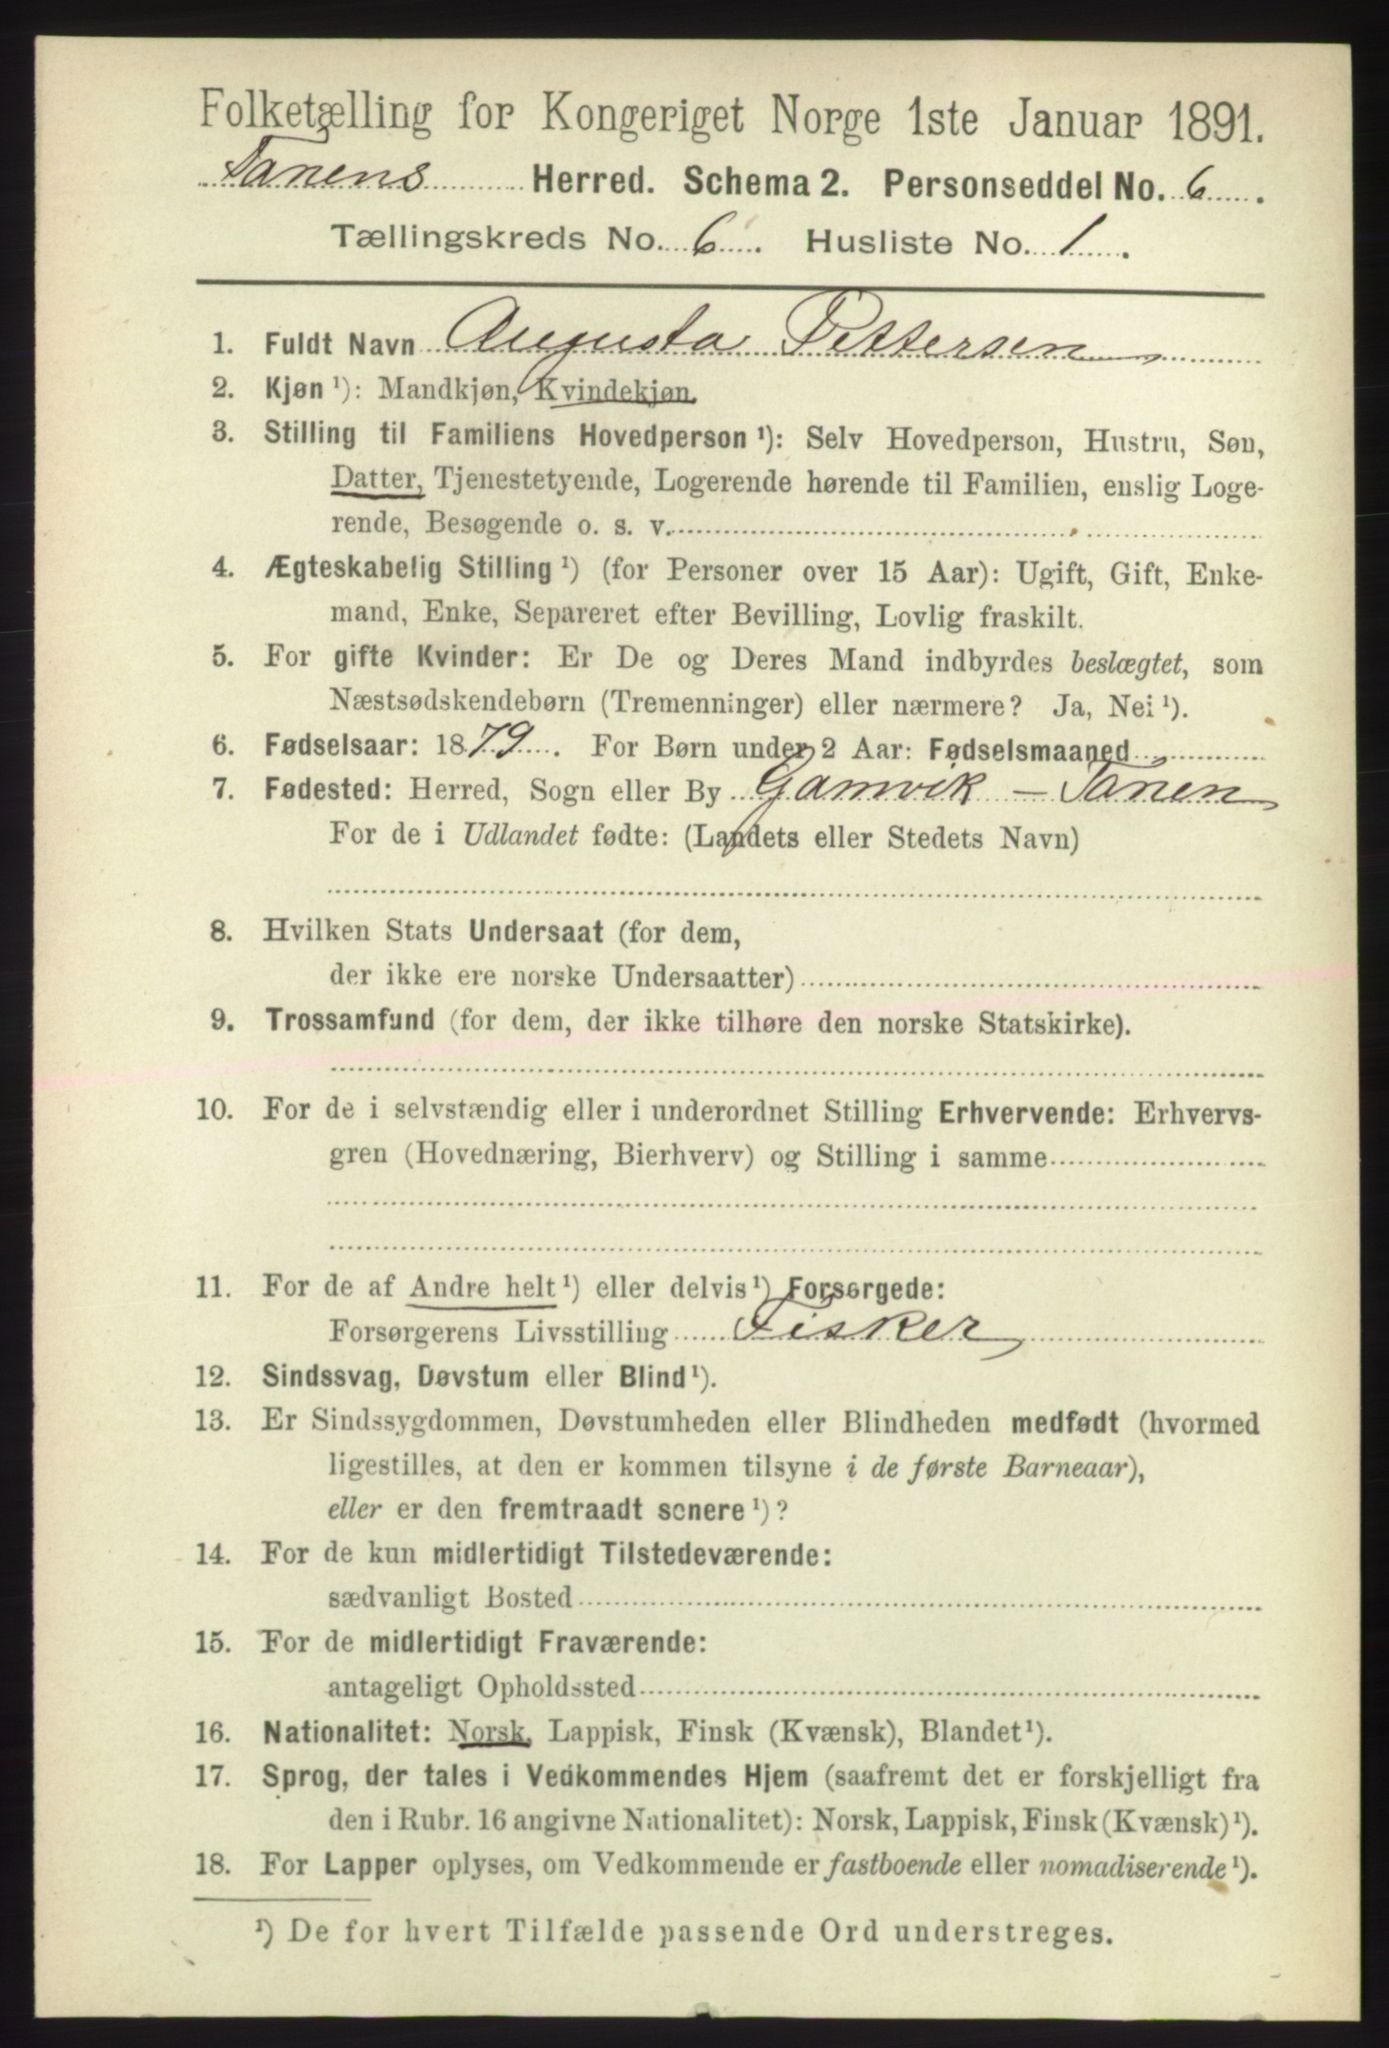 Folketælling for Kongeriget Norge 1ste Januar 1891.
Tanens Herred. Schema 2. Personseddel No. 6.
Tællingskreds No. 6. Husliste No. 1.
1. Fuldt Navn Augusta Pettersen
2. Kjøn ¹): Mandkjøn, Kvindekjøn.
3. Stilling til Familiens Hovedperson ¹): Selv Hovedperson, Hustru, Søn,
Datter, Tjenestetyende, Logerende hørende til Familien, enslig Loge-
rende, Besøgende o. s. v.
4. Ægteskabelig Stilling ¹) (for Personer over 15 Aar): Ugift, Gift, Enke-
mand, Enke, Separeret efter Bevilling, Lovlig fraskilt.
5. For gifte Kvinder: Er De og Deres Mand indbyrdes beslægtet, som
Næstsødskendebørn (Tremenninger) eller nærmere? Ja, Nei ¹).
6. Fødselsaar: 1879. For Børn under 2 Aar: Fødselsmaaned
7. Fødested: Herred, Sogn eller By Gamvik - Tanen
For de i Udlandet fødte: (Landets eller Stedets Navn)
8. Hvilken Stats Undersaat (for dem,
der ikke ere norske Undersaatter)
9. Trossamfund (for dem, der ikke tilhøre den norske Statskirke).
10. For de i selvstændig eller i underordnet Stilling Erhvervende: Erhvervs-
gren (Hovednæring, Bierhverv) og Stilling i samme
11. For de af Andre helt ¹) eller delvis ¹) Forsørgede:
Forsørgerens Livsstilling Fisker
12. Sindssvag, Døvstum eller Blind ¹).
13. Er Sindssygdommen, Døvstumheden eller Blindheden medfødt (hvormed
ligestilles, at den er kommen tilsyne i de første Barneaar),
eller er den fremtraadt senere ¹)?
14. For de kun midlertidigt Tilstedeværende:
sædvanligt Bosted
15. For de midlertidigt Fraværende:
antageligt Opholdssted
16. Nationalitet: Norsk, Lappisk, Finsk (Kvænsk), Blandet ¹).
17. Sprog, der tales i Vedkommendes Hjem (saafremt det er forskjelligt fra
den i Rubr. 16 angivne Nationalitet): Norsk, Lappisk, Finsk (Kvænsk) ¹).
18. For Lapper oplyses, om Vedkommende er fastboende eller nomadiserende ¹).
¹) De for hvert Tilfælde passende Ord understreges.